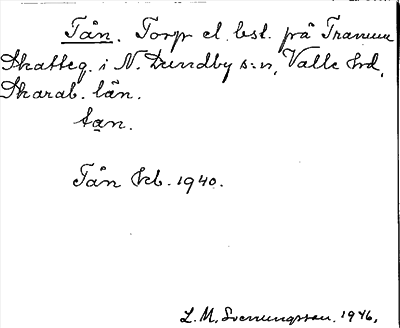 Tån. Torp el. bsl. på Tranum
Skatteg. i N. Lundby s:n, Valle hd,
Skarab. län.
tạn.
Tån kb. 1940.
L. M. Svenungsson. 1946.